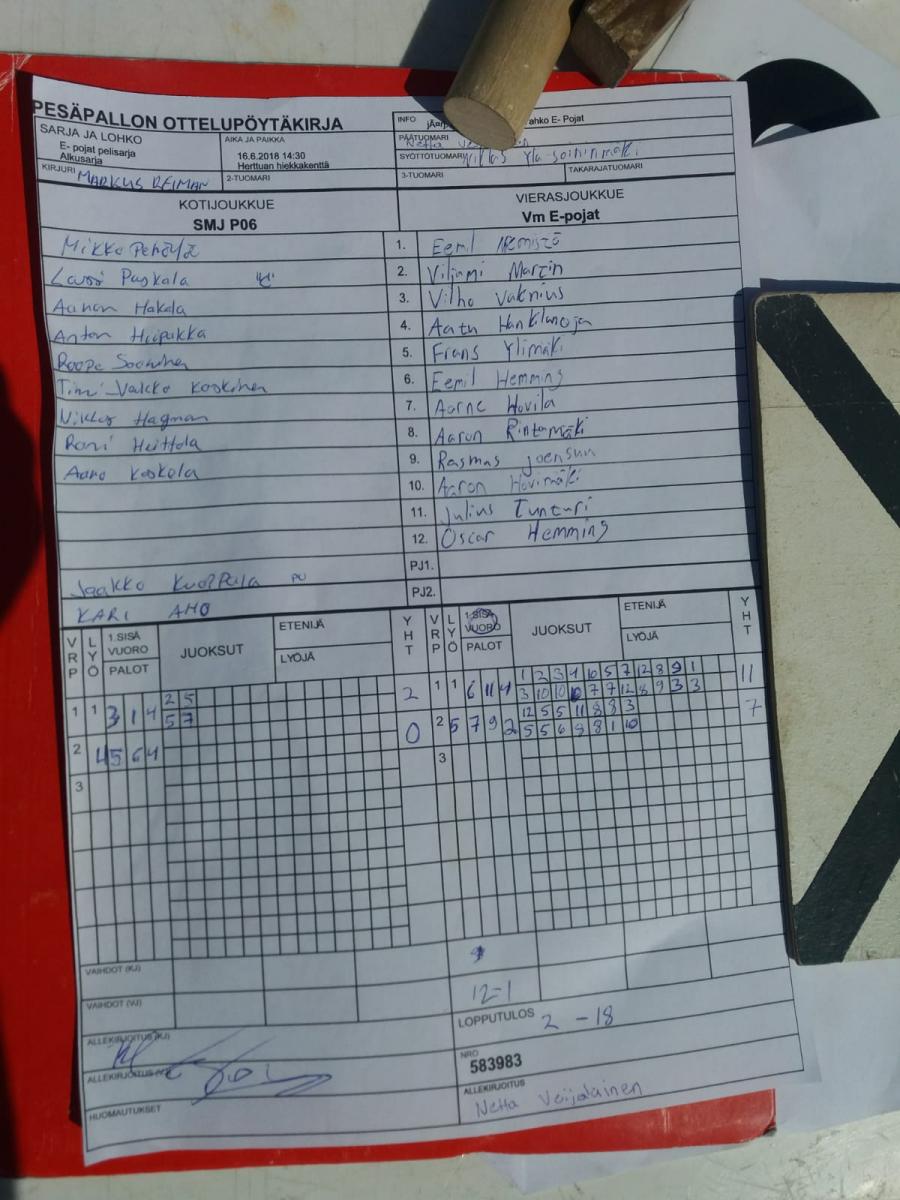 PESÄPALLON OTTELUPÖYTÄKIRJA
SARJA JA LOHKO
E- pojat pelisarja
Alkusarja
AIKA JA PAIKKA
16.6.2018 14:30
Herttuan hiekkakenttä
INFO
ahko E- Pojat
PÄÄTUOMARI Netta
SYÖTTÖTUOMARI
KIRJURI MARKUS REIMAN
2-TUOMARI
3-TUOMARI
TAKARAJATUOMARI
KOTIJOUKKUE
SMJ P06
VIERASJOUKKUE
Vm E-pojat
Mikko
1. Eemil
Lassi Paskala "C"
2. Viljami Martin
Aaron Hakala
3. Vilho
Anton Hiipakka
4. Aatu Hankilanoja
Roope
5. Frans Ylimäki
Timi Valkko Koskinen
6. Eemil Hemming
Hagman
7. Aarne Hovila
Roni Heittola
8. Aaron Rintamäki
Aaro Koskela
9. Rasmus Joensuu
10. Aaron Hovimäki
11. Julius Tunturi
12. Oscar Hemming
PJ1.
Jaakko Kuoppala PJ
PJ2.
KARI AHO
VRP LYÖ 1.SISÄ VUORO PALOT JUOKSUT ETENIJÄ LYÖJÄ YHT
VRP LYÖ 1.SISÄ VUORO PALOT JUOKSUT ETENIJÄ LYÖJÄ YHT
1 1 3 1 4 2 5 2
5 7
1 1 6 11 4 1 2 3 4 10 5 7 12 8 9 1 11
3 10 10 10 7 7 12 8 9 3 3
2 4 5 6 4 0
2 5 7 9 2 12 5 5 11 8 8 3 7
5 5 6 8 8 1 10
3
3
VAIHDOT (KJ)
VAIHDOT (VJ)
12-1
ALLEKIRJOITUS (KJ)
LOPPUTULOS 2 - 18
ALLEKIRJOITUS (VJ)
NRO
583983
HUOMAUTUKSET
ALLEKIRJOITUS
Netta Veijalainen